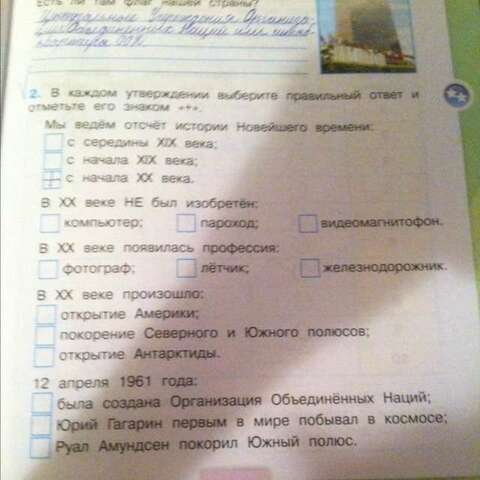 Есть ли там флаг нашей страны?
Центральные Учреждения Организа-
ции Объединённых Наций или
ООН.
2. В каждом утверждении выберите правильный ответ и
отметьте его знаком «+».
Мы ведём отсчёт истории Новейшего времени:
с середины XIX века;
с начала XIX века;
+ с начала XX века.
В XX веке НЕ был изобретён:
компьютер; пароход; видеомагнитофон.
В XX веке появилась профессия:
фотограф; лётчик; железнодорожник.
В XX веке произошло:
открытие Америки;
покорение Северного и Южного полюсов;
открытие Антарктиды.
12 апреля 1961 года:
была создана Организация Объединённых Наций;
Юрий Гагарин первым в мире побывал в космосе;
Руал Амундсен покорил Южный полюс.